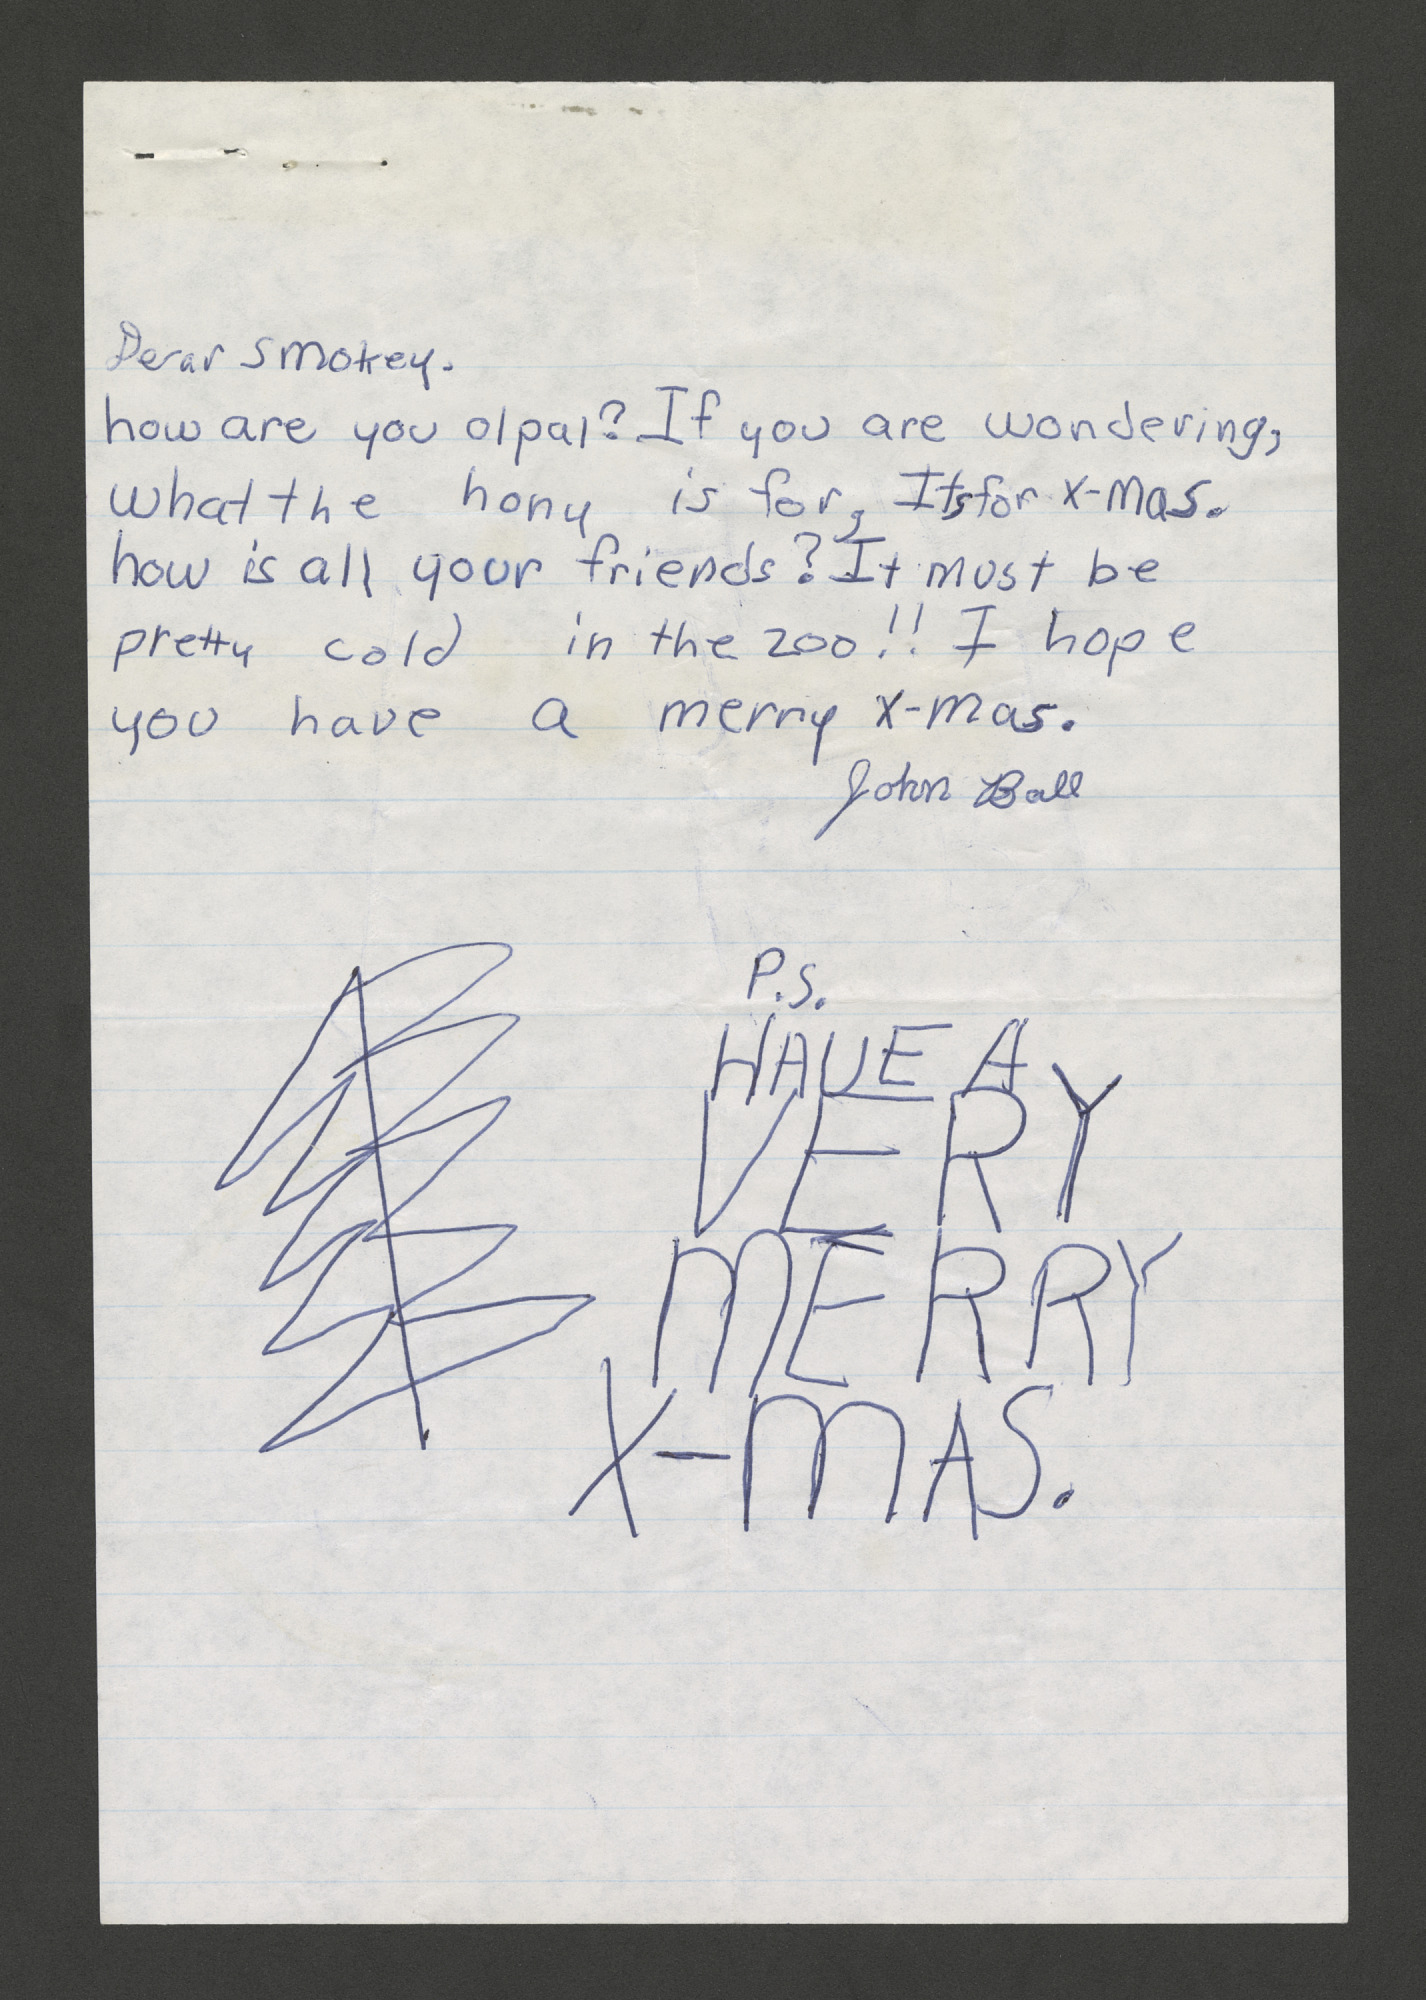 Dear Smokey.
how are you olpal? If you are wondering,
what the hony is for, Its for x-mas.
how is all your friends? It must be
pretty cold in the zoo!! I hope
you have a merry x-mas.
John Ball
P.S.
HAVE A
VERY
MERRY
X-MAS.